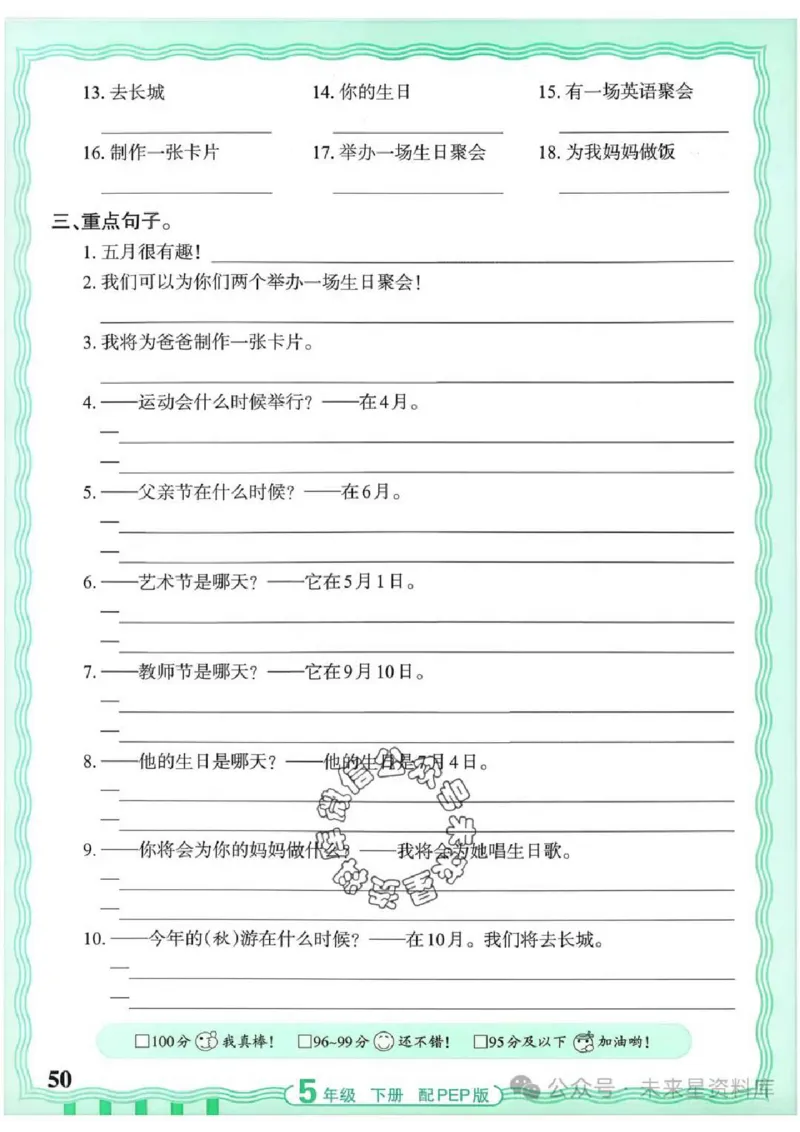 13. 去长城 14. 你的生日 15. 有一场英语聚会
16. 制作一张卡片 17. 举办一场生日聚会 18. 为我妈妈做饭
三、重点句子。
1. 五月很有趣！
2. 我们可以为你们两个举办一场生日聚会！
3. 我将为爸爸制作一张卡片。
4. ——运动会什么时候举行？ ——在4月。
5. ——父亲节在什么时候？ ——在6月。
6. ——艺术节是哪天？ ——它在5月1日。
7. ——教师节是哪天？ ——它在9月10日。
8. ——他的生日是哪天？ ——他的生日是7月4日。
9. ——你将会为你的妈妈做什么？ ——我将会为她唱生日歌。
10. ——今年的(秋)游在什么时候？ ——在10月。我们将去长城。
□100分 我真棒！ □96~99分 还不错！ □95分及以下 加油哟！
50
5年级 下册 配PEP版
公众号 · 未来星资料库